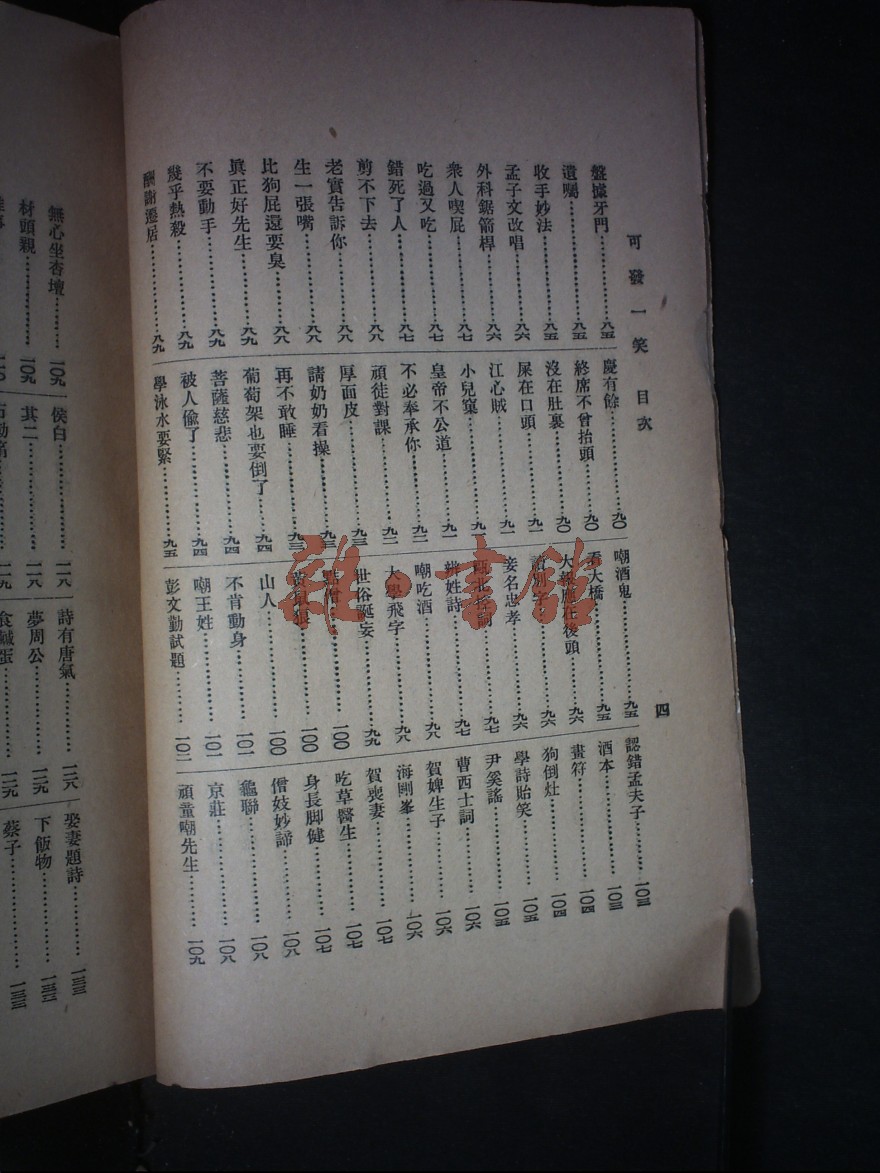 可發一笑 目次
四
盤據牙門⋯⋯八五
遺囑⋯⋯八五
收手妙法⋯⋯八五
孟子文改唱⋯⋯八六
外科鋸箭桿⋯⋯八六
衆人喫屁⋯⋯八七
吃過又吃⋯⋯八七
錯死了人⋯⋯八七
剪不下去⋯⋯八八
老實告訴你⋯⋯八八
生一張嘴⋯⋯八八
比狗屁還要臭⋯⋯八八
眞正好先生⋯⋯八九
不要動手⋯⋯八九
幾乎熱殺⋯⋯八九
酬謝遷居⋯⋯八九
慶有餘⋯⋯九〇
終席不曾抬頭⋯⋯九〇
沒在肚裏⋯⋯九〇
屎在口頭⋯⋯九一
江心賊⋯⋯九一
小兒窠⋯⋯九一
皇帝不公道⋯⋯九一
不必奉承你⋯⋯九二
頑徒對課⋯⋯九二
厚面皮⋯⋯九三
請奶奶看操⋯⋯九三
再不敢睡⋯⋯九三
葡萄架也要倒了⋯⋯九四
菩薩慈悲⋯⋯九四
被人偸了⋯⋯九四
學泳水要緊⋯⋯九五
嘲酒鬼⋯⋯九五
看大橋⋯⋯九五
大報應在後頭⋯⋯九六
讀別字⋯⋯九六
妾名忠孝⋯⋯九六
控詞⋯⋯九七
姓詩⋯⋯九七
嘲吃酒⋯⋯九八
大學飛字⋯⋯九八
世俗誕妄⋯⋯九九
僧⋯⋯一〇〇
黃鼠狼⋯⋯一〇〇
山人⋯⋯一〇〇
不肯動身⋯⋯一〇一
嘲王姓⋯⋯一〇一
彭文勤試題⋯⋯一〇二
認錯孟夫子⋯⋯一〇三
酒本⋯⋯一〇三
畫符⋯⋯一〇四
狗倒灶⋯⋯一〇四
學詩貽笑⋯⋯一〇五
尹奚謠⋯⋯一〇五
曹西士詞⋯⋯一〇六
賀婢生子⋯⋯一〇六
海剛峯⋯⋯一〇六
賀喪妻⋯⋯一〇七
吃草醫生⋯⋯一〇七
身長脚健⋯⋯一〇七
僧妓妙諦⋯⋯一〇八
龜聯⋯⋯一〇八
京莊⋯⋯一〇八
頑童嘲先生⋯⋯一〇九
無心坐杏壇⋯⋯一〇九
材頭親⋯⋯一〇九
侯白⋯⋯一一八
其二⋯⋯一一八
一一九
詩有唐氣⋯⋯一二八
夢周公⋯⋯一二九
食鹹蛋⋯⋯一二九
娶妻題詩⋯⋯一三三
下飯物⋯⋯一三三
蔡子⋯⋯一三三
雜·書館